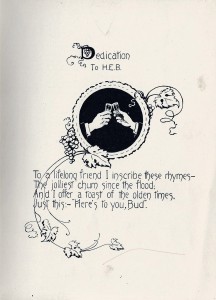 Dedication
To H.E.B.
To a lifelong friend I inscribe these rhymes—
The jolliest chum since the flood;
And I offer a toast of the olden times.
Just this:- "Here's to you, Bud".